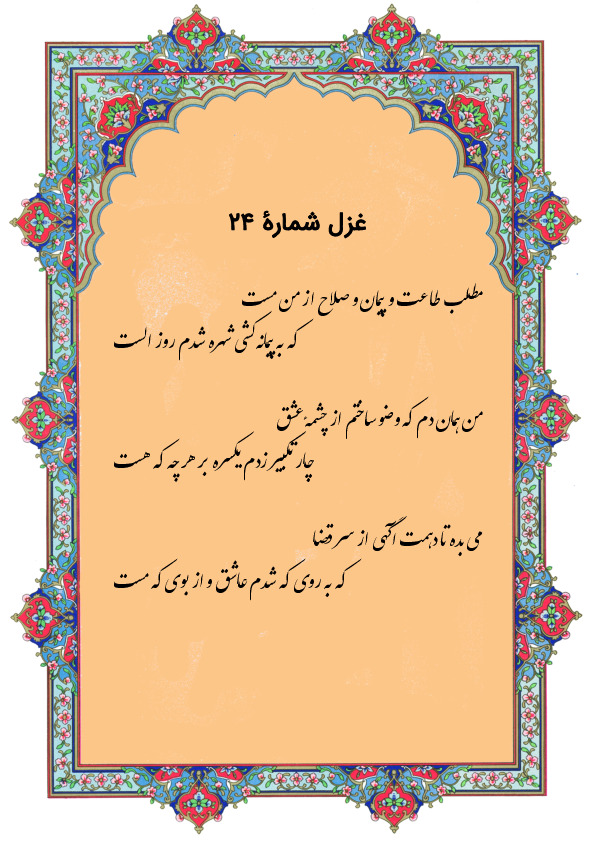 غزل شمارهٔ ۲۴
مطلب طاعت و پیمان و صلاح از من مست
که به پیمانه کشی شهره شدم روز الست
من همان دم که وضو ساختم از چشمهٔ عشق
چار تکبیر زدم یکسره بر هر چه که هست
می بده تا دهمت آگهی از سر قضا
که به روی که شدم عاشق و از بوی که مست